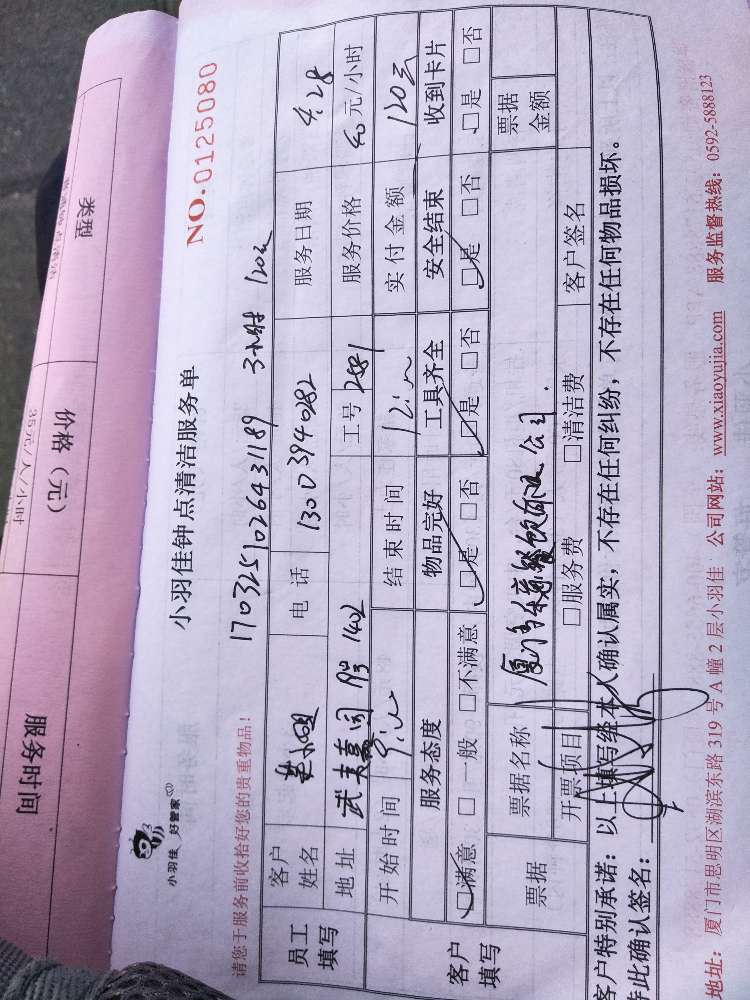 类型
价格（元）
服务时间
35元/人/小时
小羽佳 好管家
小羽佳钟点清洁服务单
NO.0125080
请您于服务前收拾好您的贵重物品！
1703251026431189 3小时 120元
员工填写
客户姓名
电话 13003940282
服务日期 4.28
地址
1402
工号 2881
服务价格 40元/小时
客户填写
开始时间
结束时间
实付金额 120元
服务态度 物品完好 工具齐全 安全结束 收到卡片
□满意 □一般 □不满意 □是 □否 □是 □否 □是 □否 □是 □否
票据
票据名称 厦门市 餐饮 公司.
票据金额
开票项目 □服务费 □清洁费
客户签名
客户特别承诺：以上填写经本人确认属实，不存在任何纠纷，不存在任何物品损坏。
特此确认签名：
地址：厦门市思明区湖滨东路 319 号 A 幢 2 层小羽佳 公司网站：www.xiaoyujia.com 服务监督热线：0592-5888123